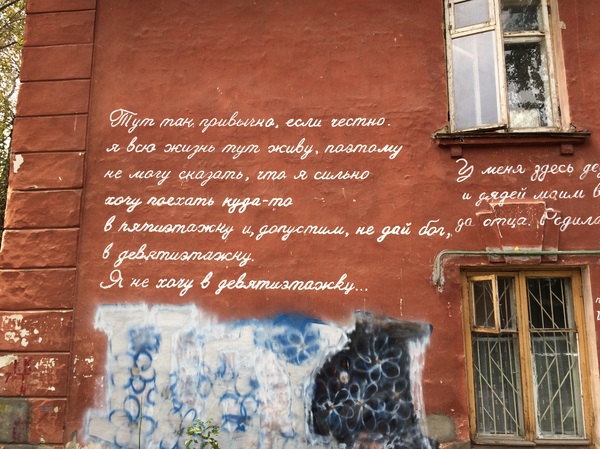 Тут так привычно, если честно.
я всю жизнь тут живу, поэтому
не могу сказать, что я сильно
хочу поехать куда-то
в пятиэтажку и, допустим, не дай бог,
в девятиэтажку.
Я не хочу в девятиэтажку...
У меня здесь
и дядей маим
да отца.